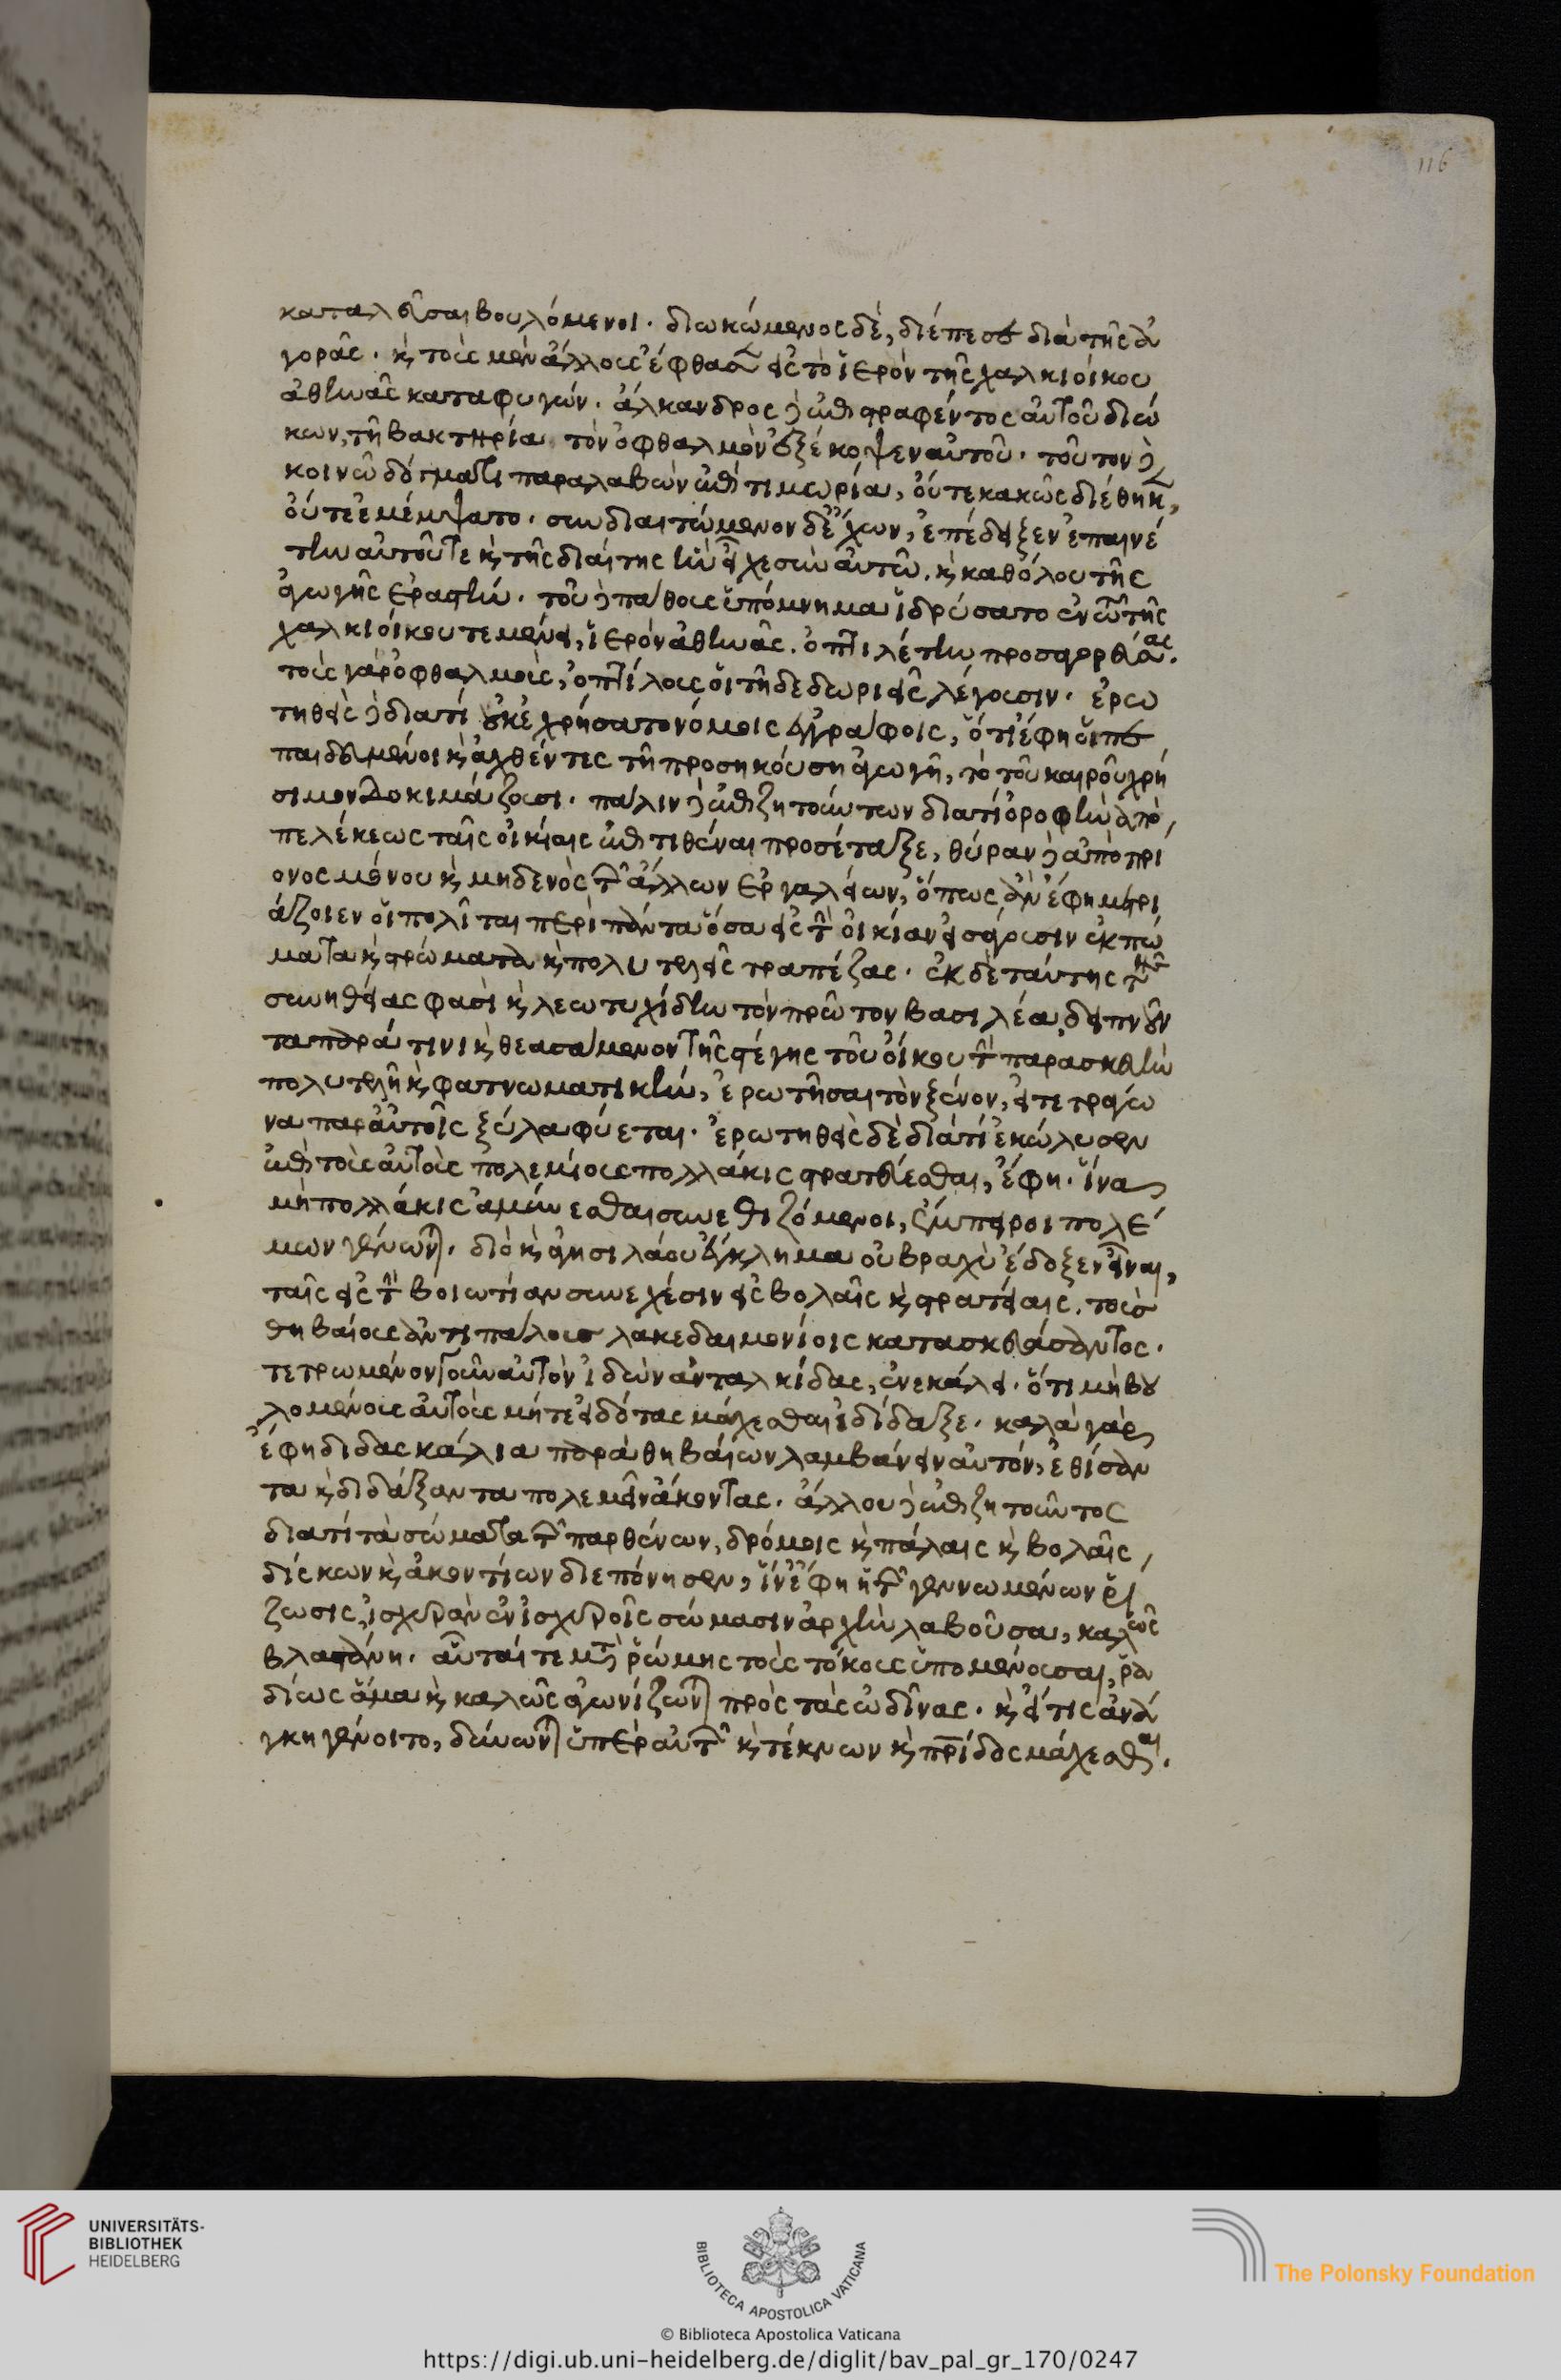 116
καταλεῦσαι βουλόμενοι. διωκόμενος δὲ, διέπεσε διὰ τῆς ἀ
γορᾶς. καὶ τοὺς μὲν ἄλλους ἔφθασεν εἰς τὸ ἱερὸν τῆς χαλκιοίκου
ἀθηνᾶς καταφυγών. ἄλκανδρος δὲ ἐπιστραφέντος αὐτοῦ διώ
κων, τῆ βακτηρία τὸν ὀφθαλμὸν ἐξέκοψεν αὐτοῦ. τοῦτον δὲ
κοινῶ δόγματι παραλαβὼν ἐπὶ τιμωρία, οὔτε κακῶς διέθηκεν,
οὔτε ἐμέμψατο. συνδιαιτώμενον δὲ ἔχων, ἐπέδειξεν ἐπαινέ
την αὐτοῦ τε καὶ τῆς διαίτης ἣν εἶχε σὺν αὐτῶ. καὶ καθόλου τῆς
ἀγωγῆς ἐραστήν. τοῦ δὲ πάθους ὑπόμνημα ἱδρύσατο ἐν τῶ τῆς
χαλκιοίκου τεμένει, ἱερὸν ἀθηνᾶς. ὀπτιλέτην προσαγορεύσας.
τοὺς γὰρ ὀφθαλμοὺς, ὀπτίλους οἱ τῆδε δωριεῖς λέγουσιν. ἐρω
τηθεὶς δὲ διατί οὐκ ἐχρήσατο νόμοις ἐγράφοις, ὅτι ἔφη οἱ πε
παιδευμένοι καὶ ἀχθέντες τῆ προσηκούση ἀγωγῆ, τὸ τοῦ καιροῦ χρή
σιμον δοκιμάζουσι. πάλιν δὲ ἐπιζητούντων διατί ὀροφὴν ἀπὸ
πελέκεως ταῖς οἰκίαις ἐπιτιθέναι προσέταξε, θύραν δὲ ἀπὸ πρί
ονος μόνου καὶ μηδενὸς τῶν ἄλλων ἐργαλείων, ὅπως ἂν ἔφη μετρι
άζοιεν οἱ πολῖται περὶ πάντα ὅσα εἰς τὴν οἰκίαν εἰσφέρουσιν ἐκπώ
ματα καὶ στρώματα καὶ πολυτελεῖς τραπέζας. ἐκ δὲ ταύτης τῆς
συνηθείας φασὶ καὶ λεωτυχίδην τὸν πρῶτον βασιλέα δειπνοῦν
τα παρά τινι καὶ θεασάμενον τῆς στέγης τοῦ οἴκου τὴν παρασκευὴν
πολυτελῆ καὶ φατνωματικήν, ἐρωτῆσαι τὸν ξένον, εἰ τετράγω
να παρ' αὐτοῖς ξύλα φύεται. ἐρωτηθεὶς δὲ διατί ἐκώλυσεν
ἐπὶ τοὺς αὐτοὺς πολεμίους πολλάκις στρατεύεσθαι, ἔφη. ἵνα
μὴ πολλάκις ἀμύνεσθαι συνεθιζόμενοι, ἔμπειροι πολέ
μων γένωνται. διὸ καὶ ἀγησιλάου ἔγκλημα οὐ βραχὺ ἔδοξεν εἶναι,
ταῖς εἰς τὴν βοιωτίαν συνεχέσιν εἰσβολαῖς καὶ στρατείαις, τοὺς
θηβαίους ἀντιπάλους λακεδαιμονίοις κατασκευάσαντος.
τετρωμένον γοῦν αὐτὸν ἰδὼν ἀνταλκίδας, ἐνεκάλει. ὅτι μὴ βου
λομένους αὐτοὺς μήτε εἰδότας μάχεσθαι ἐδίδαξε. καλὰ γὰρ
ἔφη διδασκάλια παρὰ θηβαίων λαμβάνειν αὐτόν, ἐθίσαν
τα καὶ διδάξαντα πολεμεῖν ἄκοντας. ἄλλου δὲ ἐπιζητοῦντος
διατί τὰ σώματα τῶν παρθένων, δρόμοις καὶ πάλαις καὶ βολαῖς
δίσκων καὶ ἀκοντίων διεπόνησεν, ἵν' ἔφη ἡ τῶν γεννωμένων ῥί
ζωσις ἰσχυρὰν ἐν ἰσχυροῖς σώμασιν ἀρχὴν λαβοῦσα, καλῶς
βλαστάνη. αὗταί τε μετὰ ῥώμης τοὺς τόκους ὑπομένουσαι, ῥα
δίως ἅμα καὶ καλῶς ἀγωνίζωνται πρὸς τὰς ὠδῖνας. καὶ εἴ τις ἀνά
γκη γένοιτο, δύνωνται ὑπὲρ αὐτῶν καὶ τέκνων καὶ πατρίδος μάχεσθαι.
UNIVERSITÄTS-
BIBLIOTHEK
HEIDELBERG
BIBLIOTECA APOSTOLICA VATICANA
The Polonsky Foundation
© Biblioteca Apostolica Vaticana
https://digi.ub.uni-heidelberg.de/diglit/bav_pal_gr_170/0247